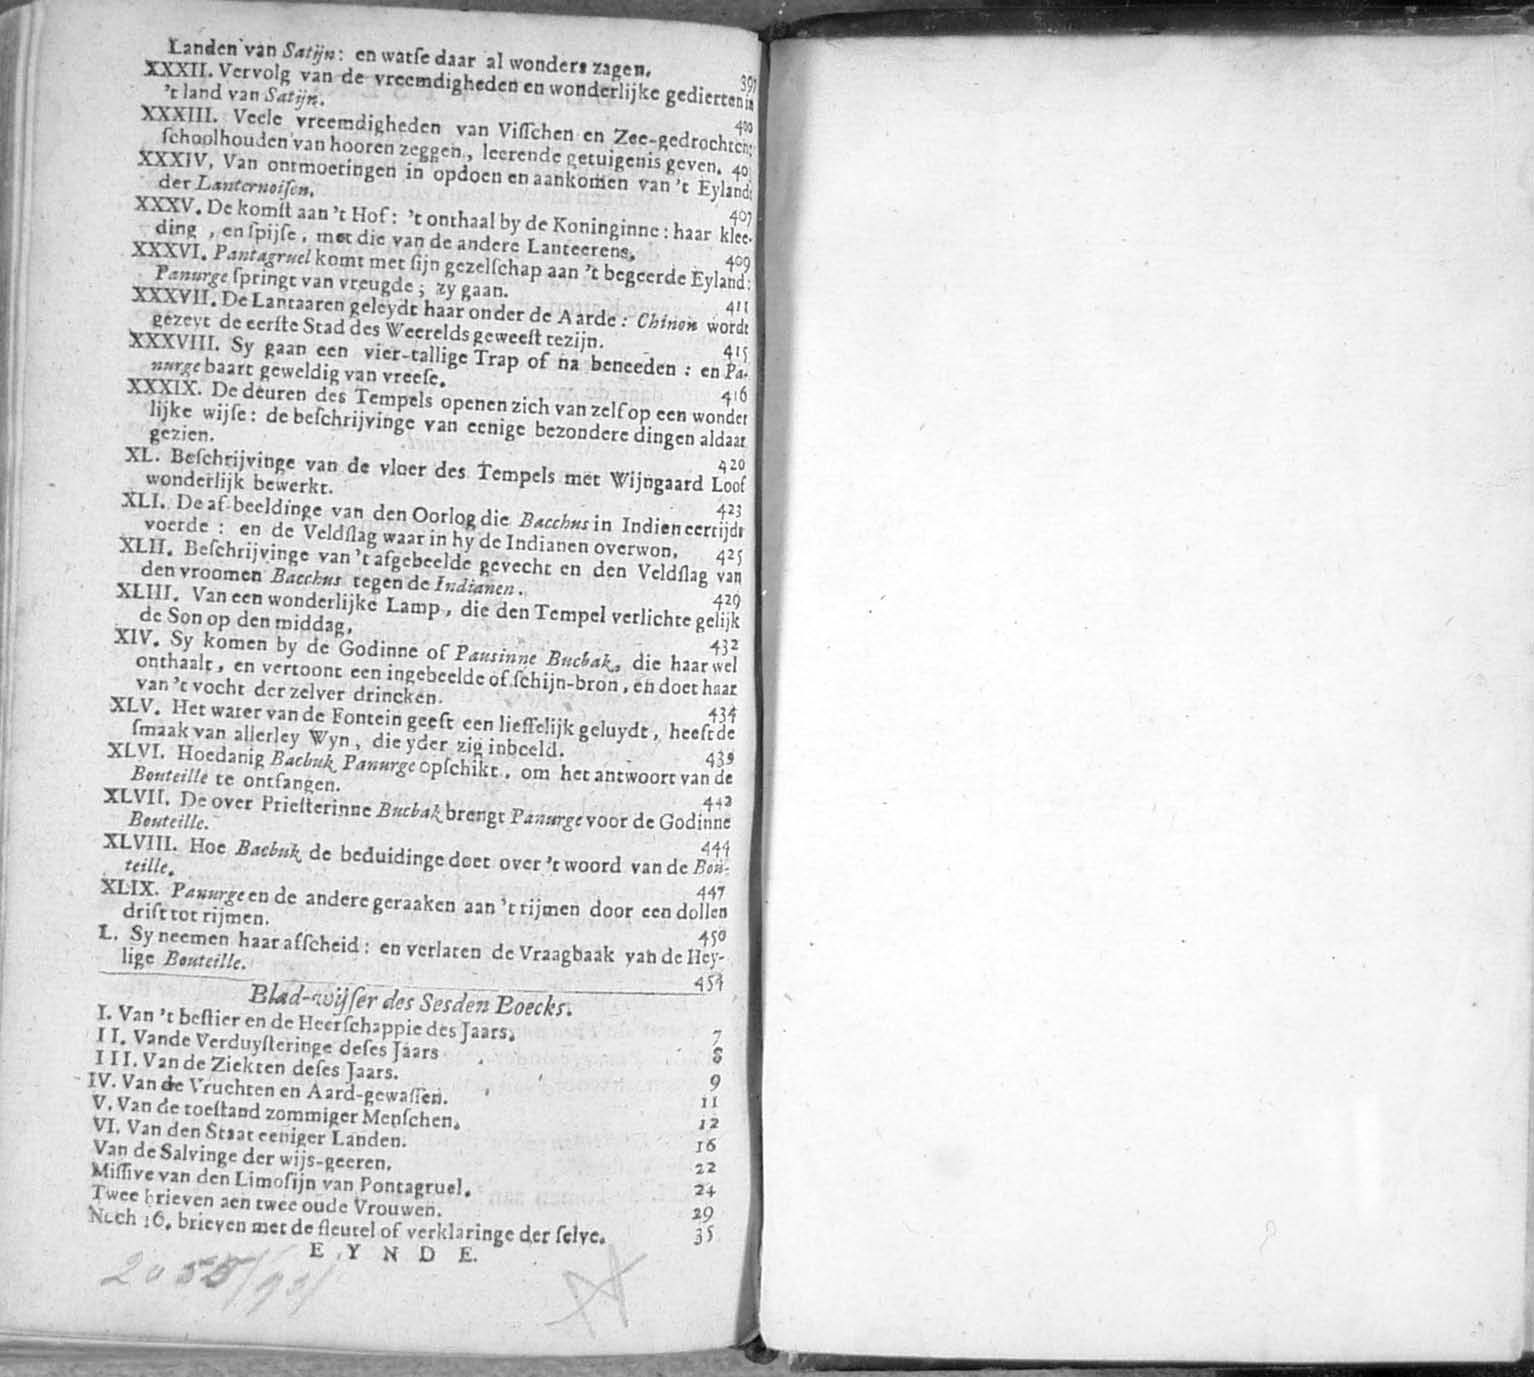 Landen van Satijn: en watſe daar al wonders zagen. 397
XXXII. Vervolg van de vreemdigheden en wonderlijke gedierten in
't land van Satijn. 400
XXXIII. Veele vreemdigheden van Viſſchen en Zee-gedrochten;
ſchoolhouden van hooren zeggen, leerende getuigenis geven. 40
XXXIV. Van ontmoetingen in opdoen en aankomen van 't Eyland
der Lanternoiſen. 407
XXXV. De komſt aan 't Hof: 't onthaal by de Koninginne: haar klee-
ding, en ſpijſe, met die van de andere Lanteerens. 409
XXXVI. Pantagruel komt met ſijn gezelſchap aan 't begeerde Eyland:
Panurge ſpringt van vreugde; zy gaan. 411
XXXVII. De Lantaaren geleydt haar onder de Aarde: Chinon wordt
gezeyt de eerſte Stad des Weerelds geweeſt te zijn. 415
XXXVIII. Sy gaan een vier-tallige Trap of na beneeden: en Pa-
nurge baart geweldig van vreeſe. 416
XXXIX. De deuren des Tempels openen zich van zelf op een wonder
lijke wijſe: de beſchrijvinge van eenige bezondere dingen aldaar
gezien. 420
XL. Beſchrijvinge van de vloer des Tempels met Wijngaard Loof
wonderlijk bewerkt. 423
XLI. De af-beeldinge van den Oorlog die Bacchus in Indien eertijdt
voerde: en de Veldſlag waar in hy de Indianen overwon. 425
XLII. Beſchrijvinge van 't afgebeelde gevecht en den Veldſlag van
den vroomen Bacchus tegen de Indianen. 429
XLIII. Van een wonderlijke Lamp, die den Tempel verlichte gelijk
de Son op den middag. 432
XIV. Sy komen by de Godinne of Pausinne Bucbak, die haar wel
onthaalt, en vertoont een ingebeelde of ſchijn-bron, en doet haar
van 't vocht der zelver drincken. 434
XLV. Het water van de Fontein geeft een lieffelijk geluydt, heeft de
ſmaak van allerley Wyn, die yder zig inbeeld. 439
XLVI. Hoedanig Bacbuk Panurge opſchikt, om het antwoort van de
Bouteille te ontfangen. 442
XLVII. De over Prieſterinne Bucbak brengt Panurge voor de Godinne
Bouteille. 444
XLVIII. Hoe Bacbuk de beduidinge doet over 't woord van de Bou-
teille. 447
XLIX. Panurge en de andere geraaken aan 't rijmen door een dollen
drift tot rijmen. 450
L. Sy neemen haar afſcheid: en verlaten de Vraagbaak van de Hey-
lige Bouteille. 454
Blad-wijſer des Sesden Boecks.
I. Van 't beſtier en de Heerſchappie des Jaars. 7
II. Vande Verduyſteringe deſes Jaars 8
III. Van de Ziekten deſes Jaars. 9
IV. Van de Vruchten en Aard-gewaſſen. 11
V. Van de toeſtand zommiger Menſchen. 12
VI. Van den Staat eeniger Landen. 16
Van de Salvinge der wijs-geeren. 22
Miſſive van den Limoſijn van Pontagruel. 24
Twee brieven aen twee oude Vrouwen. 29
Noch 16. brieven met de ſleutel of verklaringe der ſelve. 35
EYNDE.